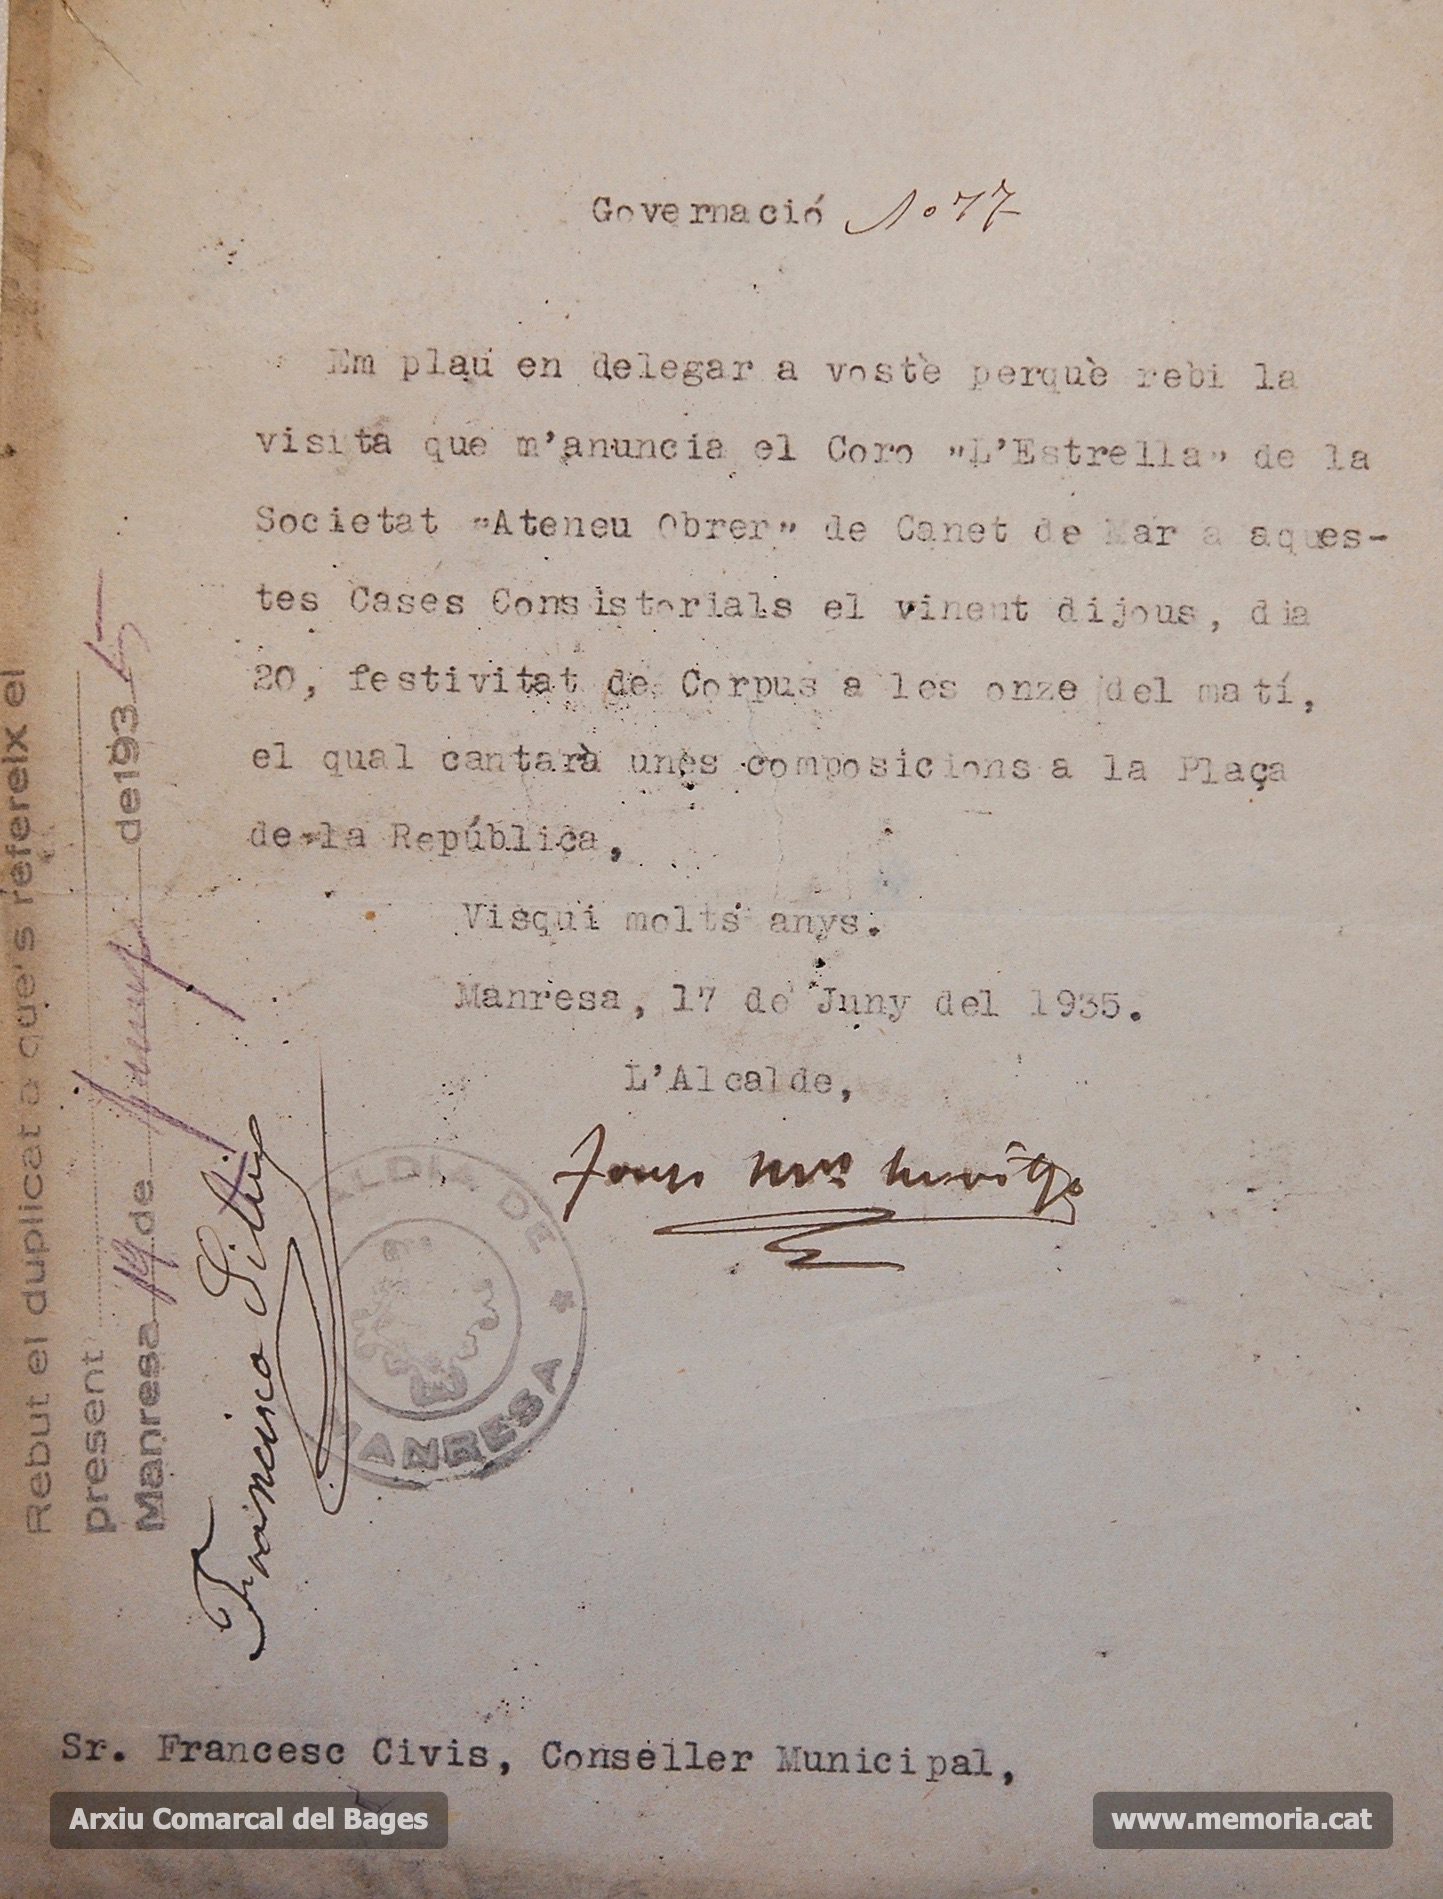 Governació Nº 77
Em plau en delegar a vostè perquè rebi la
visita que m'anuncia el Coro "L'Estrella" de la
Societat "Ateneu Obrer" de Canet de Mar a aques-
tes Cases Consistorials el vinent dijous, dia
20, festivitat de Corpus a les onze del matí,
el qual cantarà unes composicions a la Plaça
de la República,
Visqui molts anys.
Manresa, 17 de Juny del 1935.
L'Alcalde,
ALCALDIA DE MANRESA
Rebut el duplicat a que's refereix el
present
Manresa 19 de Juny de 1935
Francisco
Sr. Francesc Civis, Conseller Municipal,
Arxiu Comarcal del Bages
www.memoria.cat